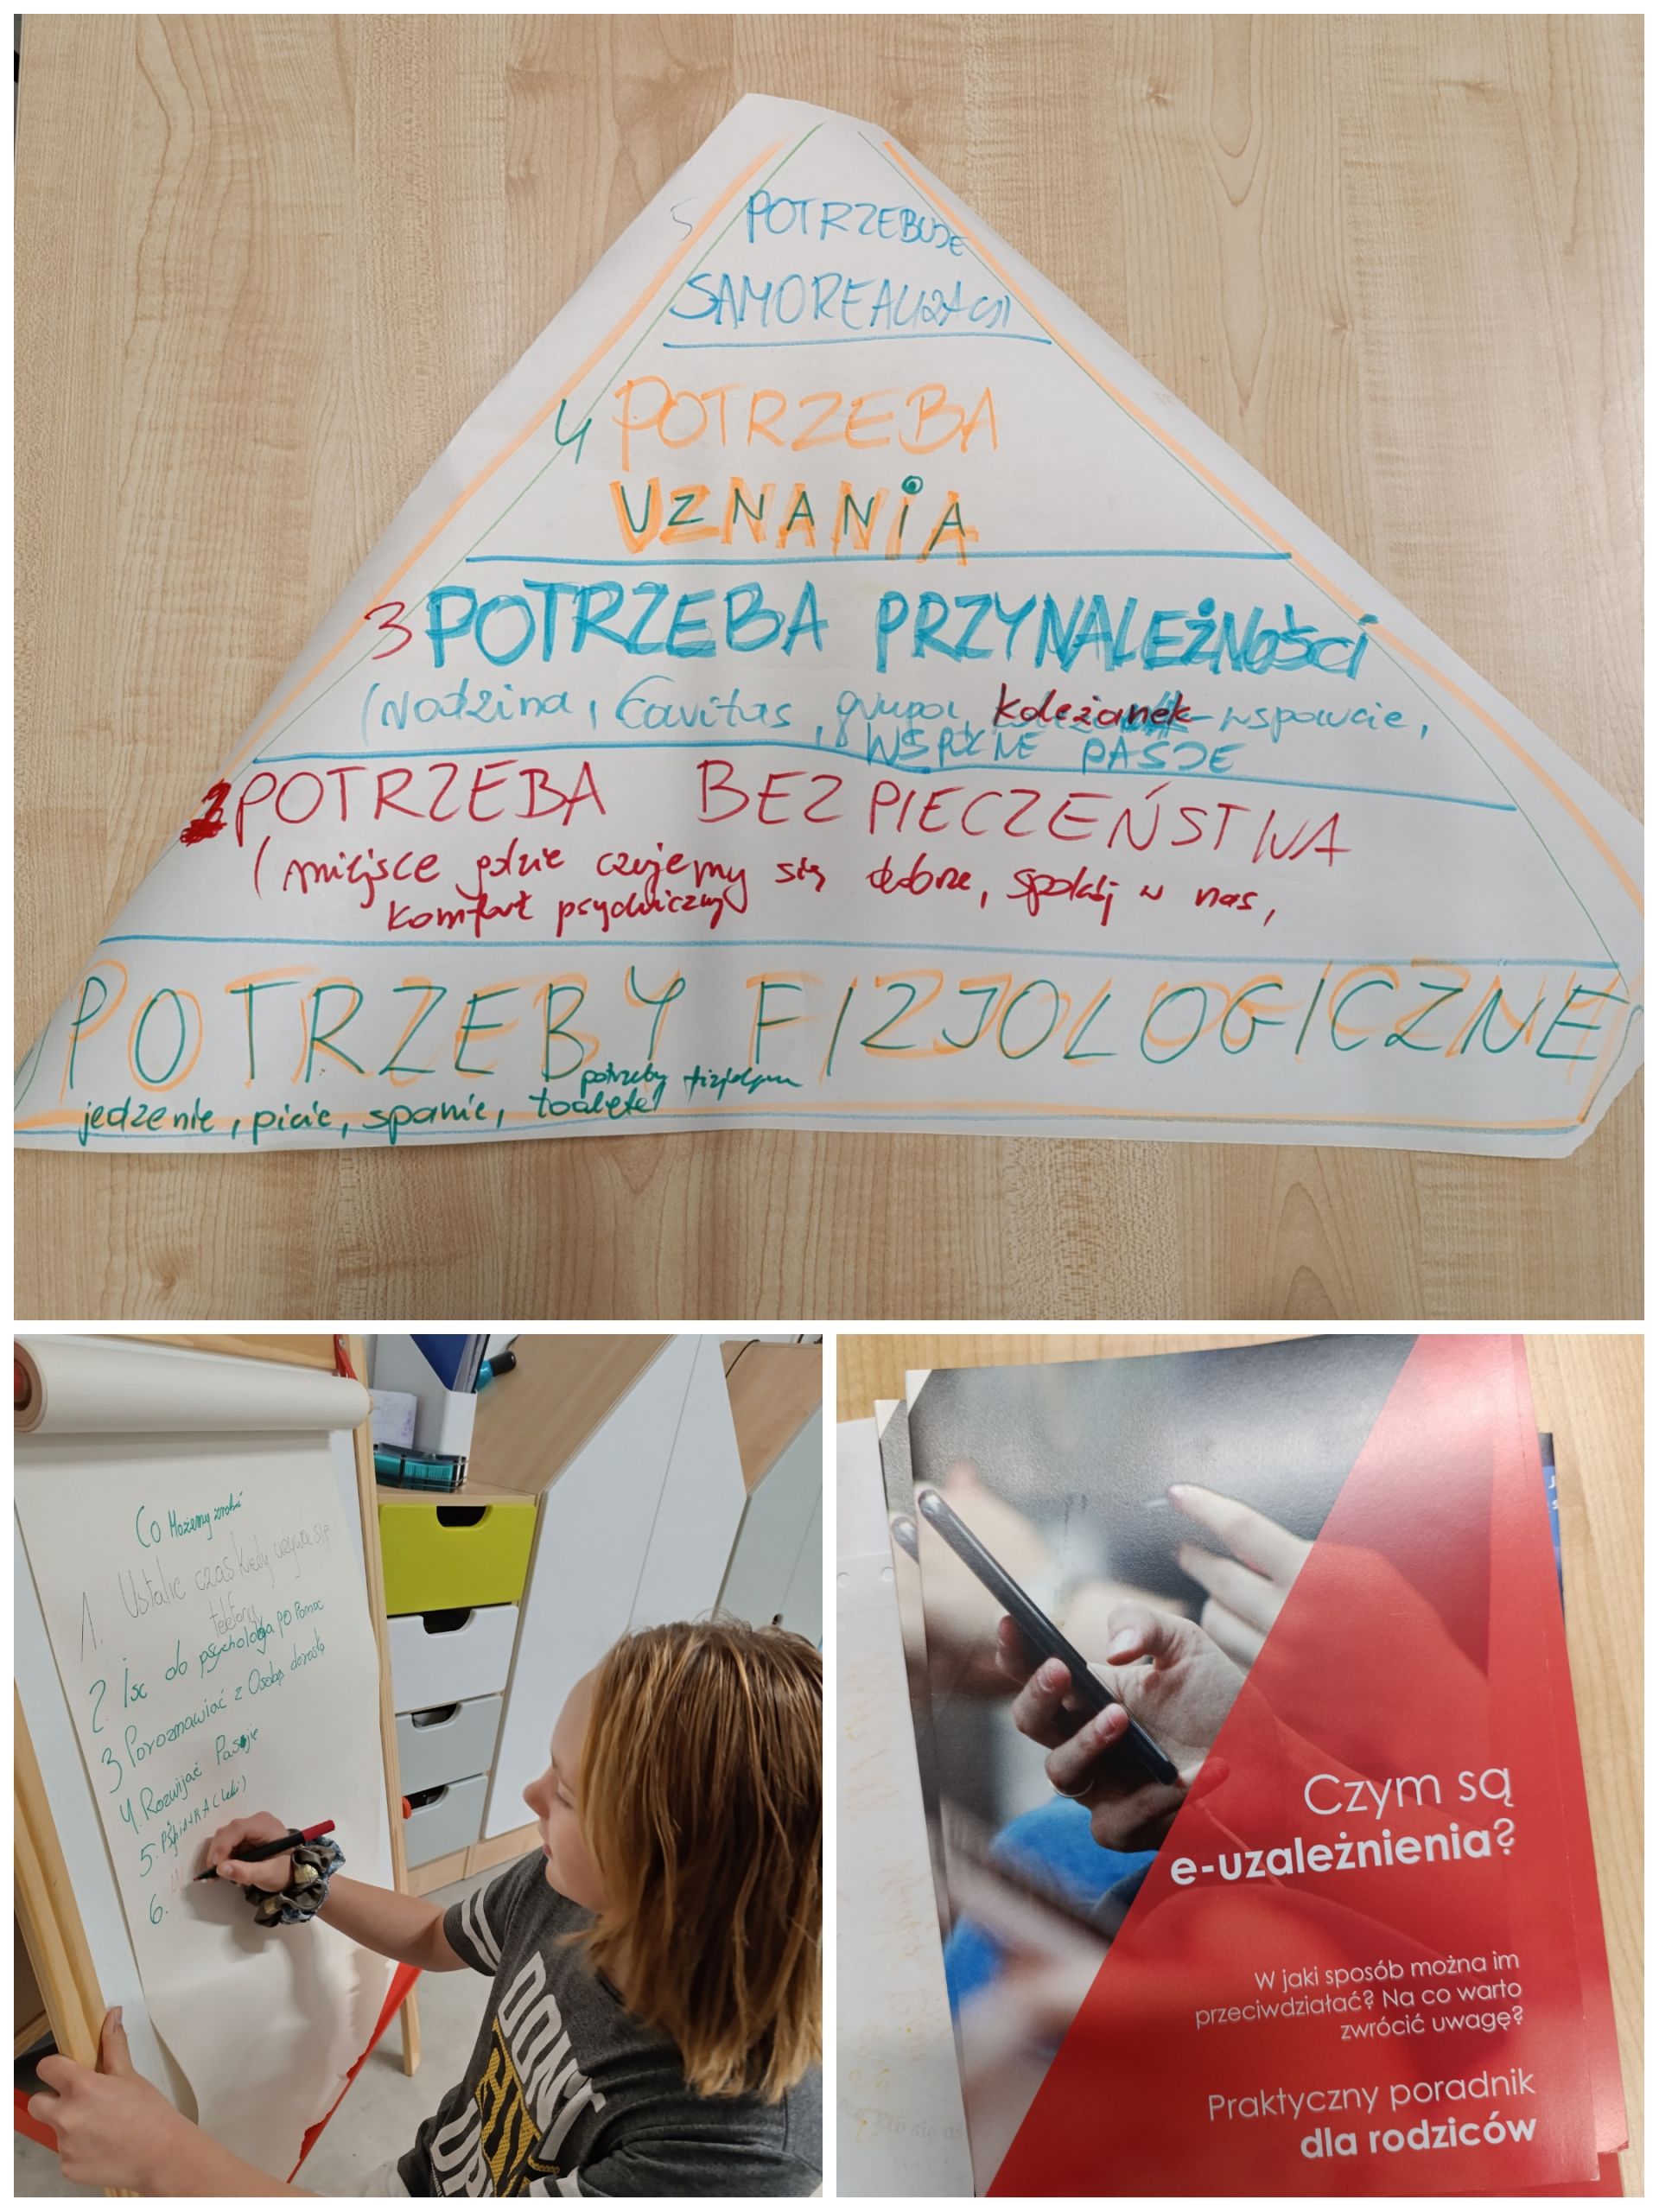 5 POTRZEBUJE
SAMOREALIZACJI
4 POTRZEBA
UZNANIA
3 POTRZEBA PRZYNALEŻNOŚCI
(rodzina, Caritas, grupa, koleżanek wsparcie,
WSPÓLNE PASJE
2 POTRZEBA BEZPIECZEŃSTWA
(miejsce gdzie czujemy się dobrze, spokój w nas,
komfort psychiczny
POTRZEBY FIZJOLOGICZNE
potrzeby
jedzenie, picie, spanie, toaleta
Co Możemy zrobić
1. Ustalić czas kiedy używa się
telefonu
2. Isc do psychologa po Pomoc
3 Porozmawiać z Osobą dorosłą
4 Rozwijać Pasje
5. (leki)
6.
DONT
Czym są
e-uzależnienia?
W jaki sposób można im
przeciwdziałać? Na co warto
zwrócić uwagę?
Praktyczny poradnik
dla rodziców